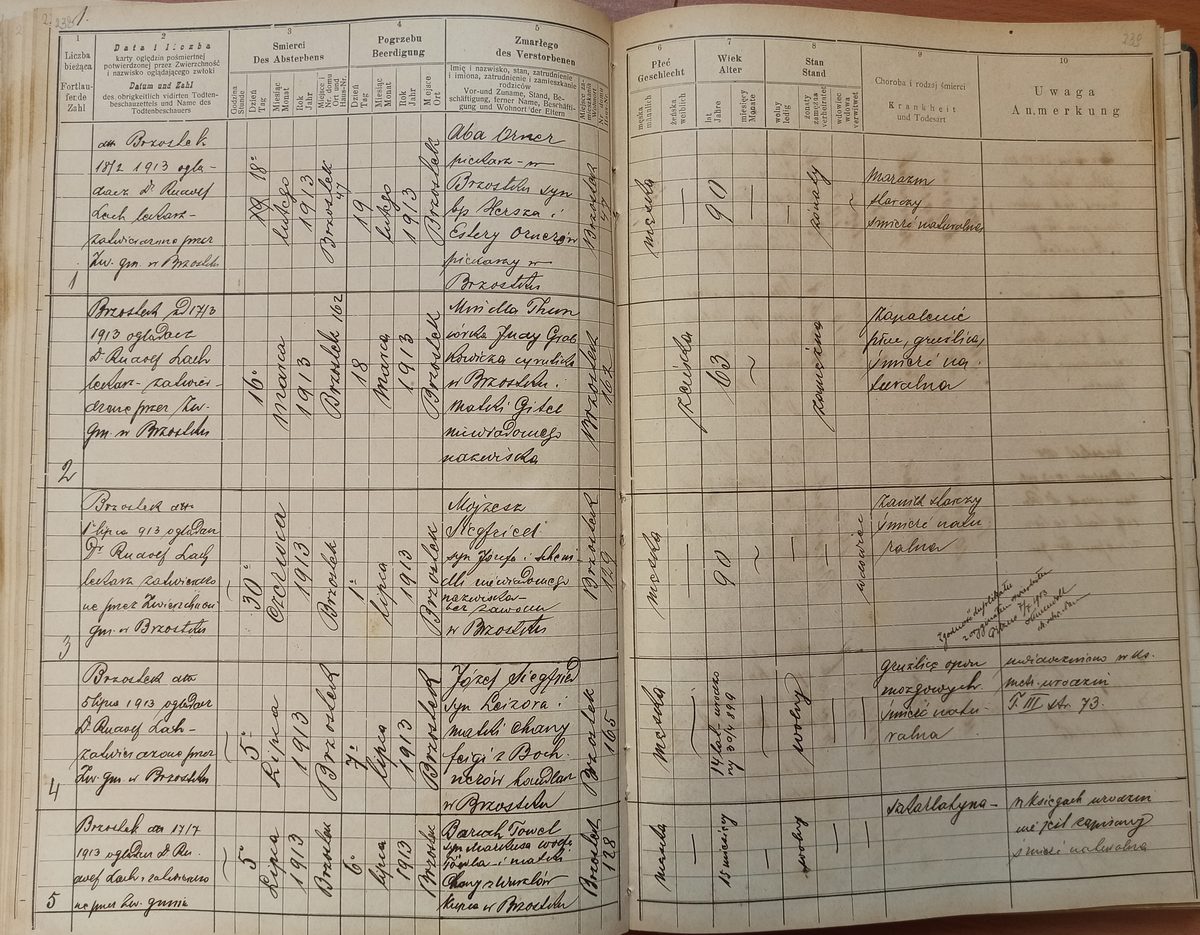 238
1.
239
1
2
3
4
5
6
7
8
9
10
Liczba
bieżąca
Fortlau-
fer de
Zahl
Data i liczba
karty oględzin pośmiertnej
potwierdzonej przez Zwierzchność
i nazwisko oglądającego zwłoki
Datum und Zahl
des obrigkeitlich vidirten Todten-
beschauzettels und Name des
Todtenbeschauers
Smierci
Des Absterbens
Godzina
Stunde
Dzień
Tag
Miesiąc
Monat
Rok
Jahr
Miejsce i
Nr. domu
Ort und
Haus-Nr.
Pogrzebu
Beerdigung
Dzień
Tag
Miesiąc
Monat
Rok
Jahr
Miejsce
Ort
Zmarłego
des Verstorbenen
Imię i nazwisko, stan, zatrudnienie
i imiona, zatrudnienie i zamieszkanie
rodziców
Vor-und Zuname, Stand, Be-
schäftigung, ferner Name, Beschäfti-
gung und Wolnort der Eltern
Płeć
Geschlecht
męska
männlich
żeńska
weiblich
Wiek
Alter
lat
Jahre
miesięcy
Monate
Stan
Stand
wolny
ledig
żonaty
zamężna
verheiratet
wdowiec
wdowa
verwitwet
Choroba i rodzaj śmierci
Krankheit
und Todesart
Uwaga
Anmerkung
1
Brzostek
18/2 1913 oglą-
dacz Dr Rudolf
Lach lekarz-
zatwierdzone przez
Zw. gm. w Brzostku
18
lutego
1913
Brzostek
47
19
lutego
1913
Brzostek
Aba Orner
piekarz w
Brzostku syn
bp Hersza i
Estery Ornerów
piekarzy w
Brzostku
Brzostek
47
męska
90
żonaty
Marazm
starczy
śmierć naturalna
2
Brzostek d 17/3
1913 oglądacz
Dr Rudolf Lach
lekarz- zatwier-
dzone przez Zw.
gm. w Brzostku
16
Marca
1913
Brzostek 162
18
Marca
1913
Brzostek
Mindla Thun
córka Judy Grab
kowicza cyrulika
w Brzostku i
matki Gitel
niewiadomego
nazwiska
Brzostek
162
żeńska
63
zamężna
zapalenie
płuc, gruźlica,
śmierć na-
turalna
3
Brzostek dto
1 lipca 913 oglądacz
Dr Rudolf Lach
lekarz zatwierdzo
ne przez Zwierzchność
gm. w Brzostku
30
Czerwca
1913
Brzostek
1
lipca
1913
Brzostek
Mojżesz
Siegfried
syn Józefa i Schein
dli niewiadomego
nazwiska-
bez zawodu
w Brzostku
Brzostek
129
męska
90
wdowiec
Zanik starczy
śmierć natu
ralna
4
Brzostek dto
5 lipca 1913 oglądacz
Dr Rudolf Lach-
zatwierdzone przez
Zw. gm. w Brzostku
5
Lipca
1913
Brzostek
7
lipca
1913
Brzostek
Józef Siegfried
syn Leizora i
matki Chany
feigi z Boch
nerów handlarz
w Brzostku
Brzostek
165
męska
14 lat urodzo
ny 30/4 899
wolny
gruźlicę opon
mózgowych
śmierć natu-
ralna
uwidoczniono w ks.
metr. urodzin
T. III str. 73.
5
Brzostek dto 17/7
1913 oglądacz Dr Ru-
dolf Lach zatwierdzo
ne przez Zw. gminną
5
Lipca
1913
Brzostek
6
lipca
1913
Brzostek
Baruch
syn Markusa
i matki
Chany
kupca w Brzostku
Brzostek
128
męska
15 miesięcy
wolny
szkarlatyna-
w księgach urodzin
nie jest zapisany
śmierć naturalna